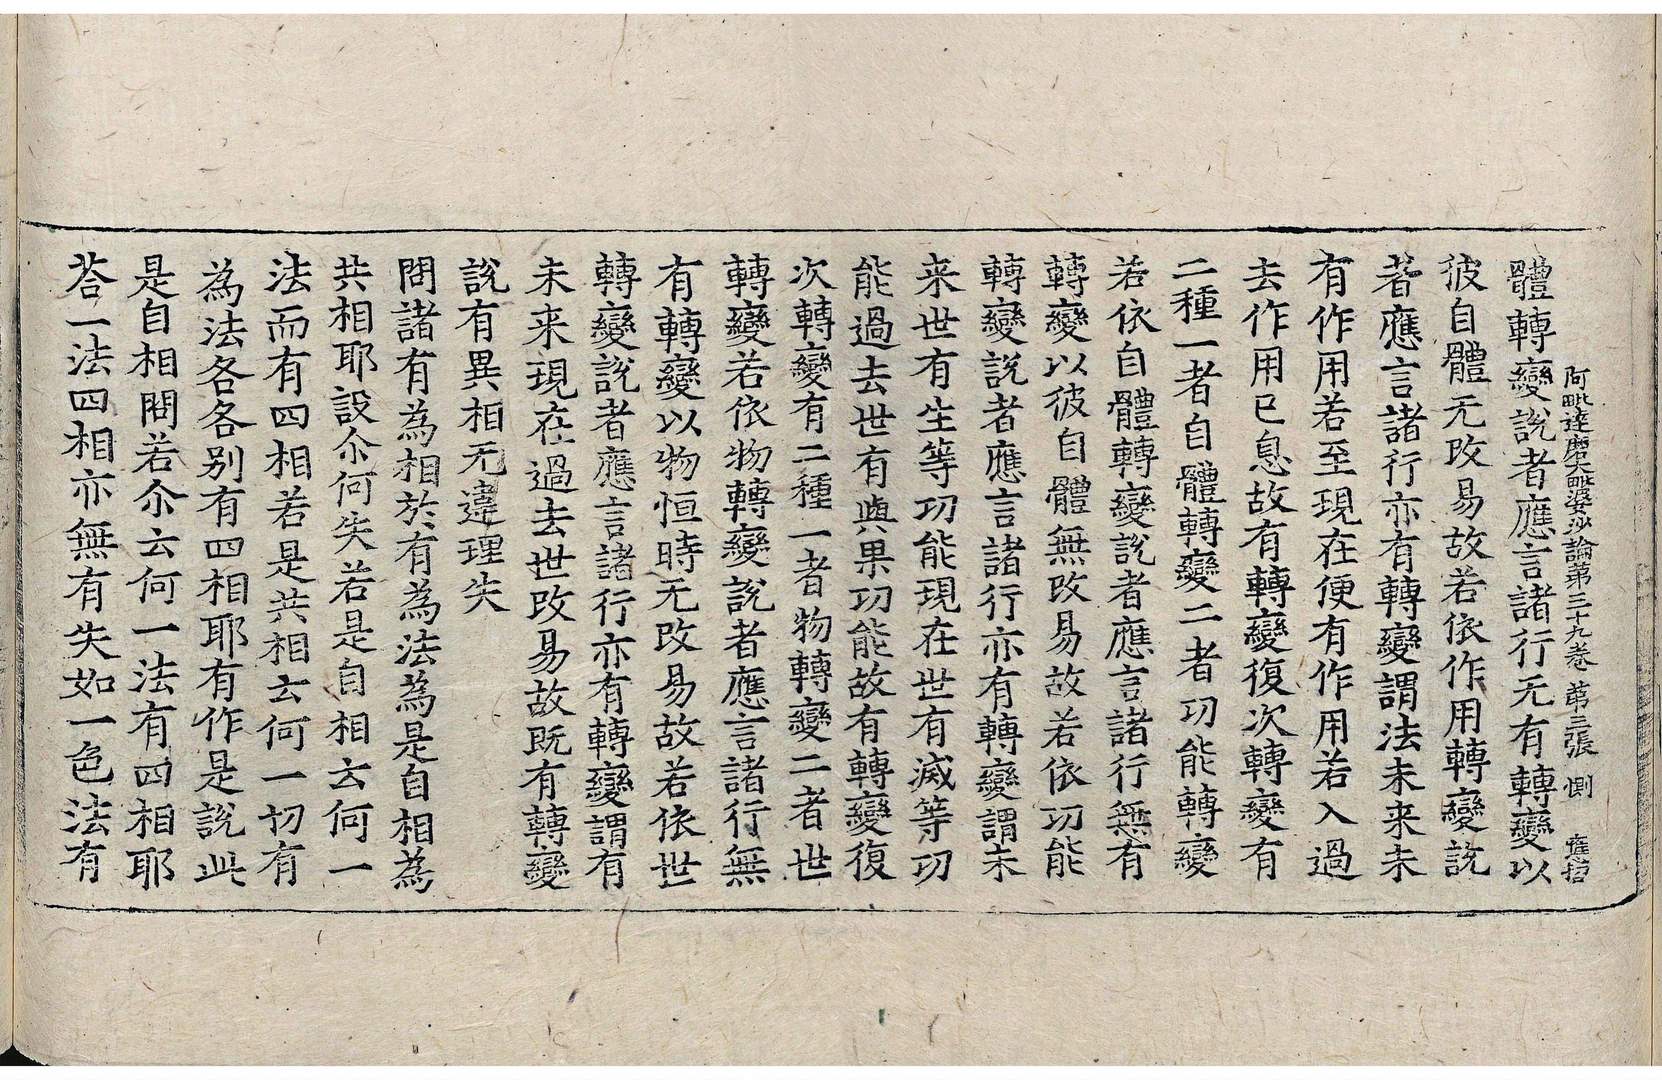 阿毗達磨大毗婆沙論第三十九卷 第三張 惻
體轉變說者應言諸行无有轉變以
彼自體无改易故若依作用轉變說
者應言諸行亦有轉變謂法未来未
有作用若至現在便有作用若入過
去作用已息故有轉變復次轉變有
二種一者自體轉變二者功能轉變
若依自體轉變說者應言諸行無有
轉變以彼自體無改易故若依功能
轉變說者應言諸行亦有轉變謂未
来世有生等功能現在世有滅等功
能過去世有與果功能故有轉變復
次轉變有二種一者物轉變二者世
轉變若依物轉變說者應言諸行無
有轉變以物恒時无改易故若依世
轉變說者應言諸行亦有轉變謂有
未来現在過去世改易故既有轉變
說有異相无違理失
問諸有為相於有為法為是自相為
共相耶設尒何失若是自相云何一
法而有四相若是共相云何一切有
為法各各別有四相耶有作是說此
是自相問若尒云何一法有四相耶
荅一法四相亦無有失如一色法有